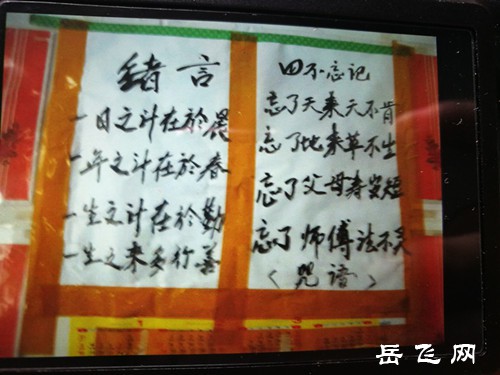 緒言
一日之计在於晨
一年之计在於春
一生之计在於勤
一生之来多行善
四不忘记
忘了天来天不肯
忘了地来草不生
忘了父母寿岁短
忘了師傅法不灵
<咒语>
岳飞网